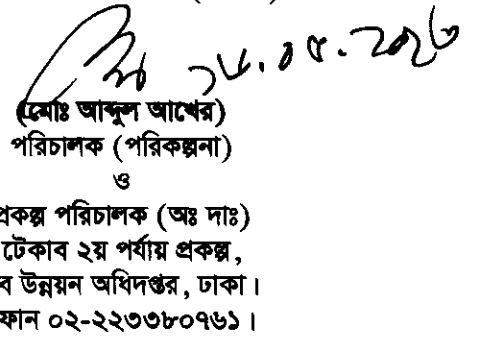 (মোঃ আব্দুল আখের)
পরিচালক (পরিকল্পনা)
ও
প্রকল্প পরিচালক (অঃ দাঃ)
টেকাব ২য় পর্যায় প্রকল্প,
ব উন্নয়ন অধিদপ্তর, ঢাকা।
ফোন ০২-২২৩৩৮০৭৬১।